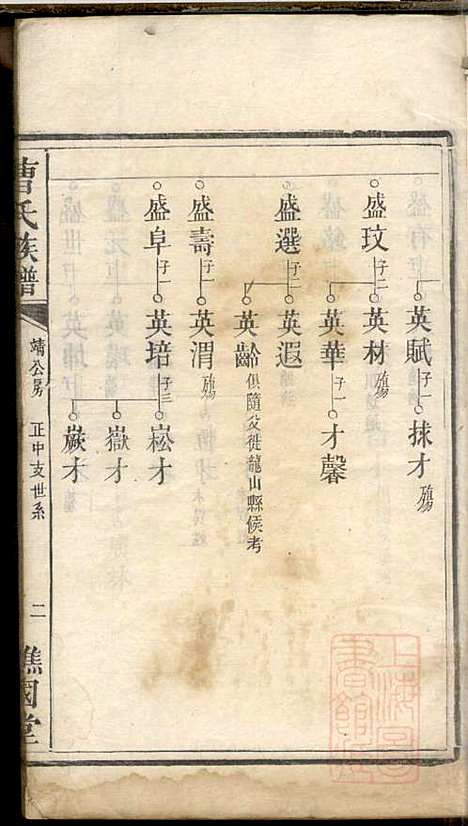 英賦 子一 抹才 殤
盛玟 子二 英材 殤
英華 子一 才馨
盛選 子二 英遐
英齡 俱隨父徙龍山縣候考
盛壽 子一 英渭 殤
盛阜 子一 英培 子三 崧才
嶽才
才
曹氏族譜 靖公房 正中支世系 二 譙國堂
上海圖書館藏